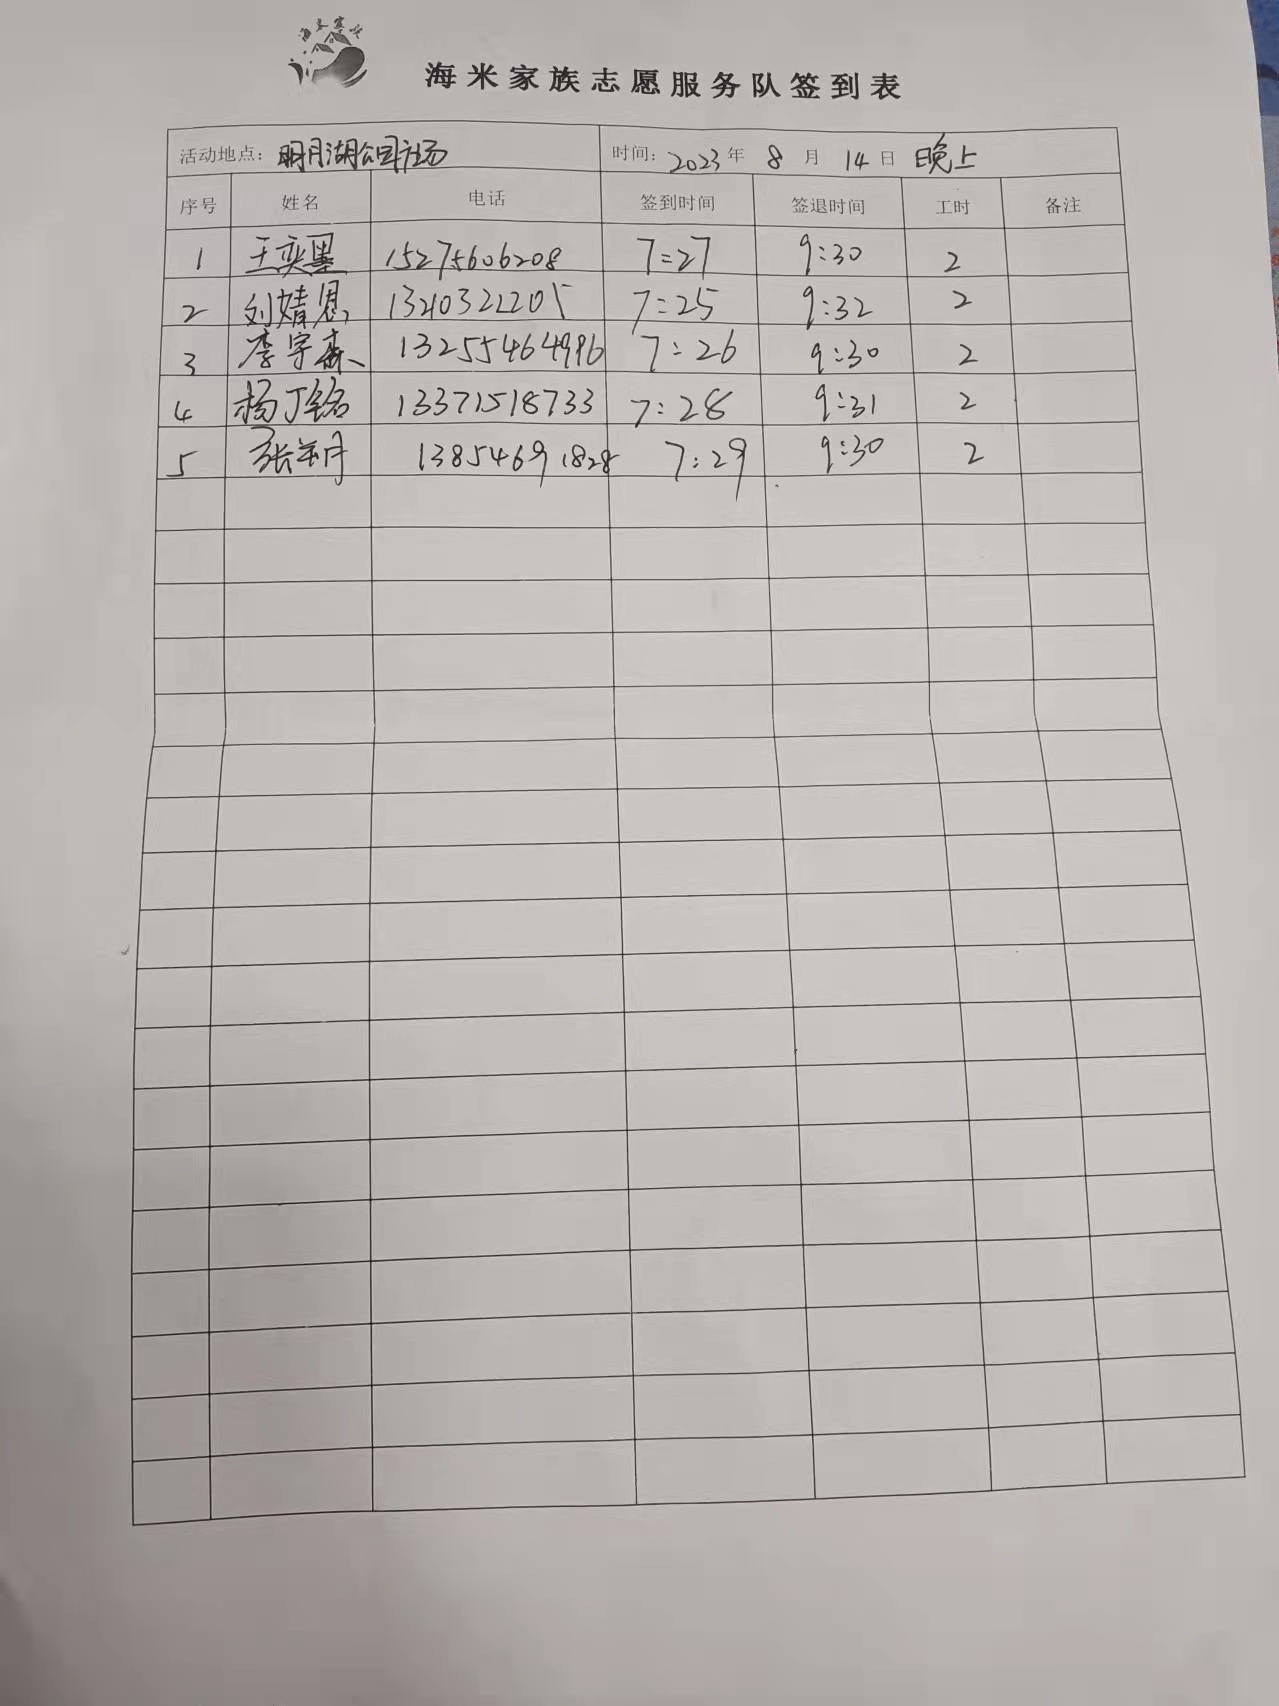 海米家族志愿服务队签到表
活动地点：明月湖公园广场 时间：2023年 8月 14日 晚上
序号 姓名 电话 签到时间 签退时间 工时 备注
1 王奕墨 15275606208 7:27 9:30 2
2 刘婧恩 1320322205 7:25 9:32 2
3 李宇森 13255464996 7:26 9:30 2
4 杨丁铭 13371518733 7:28 9:31 2
5 张 13854691828 7:29 9:30 2